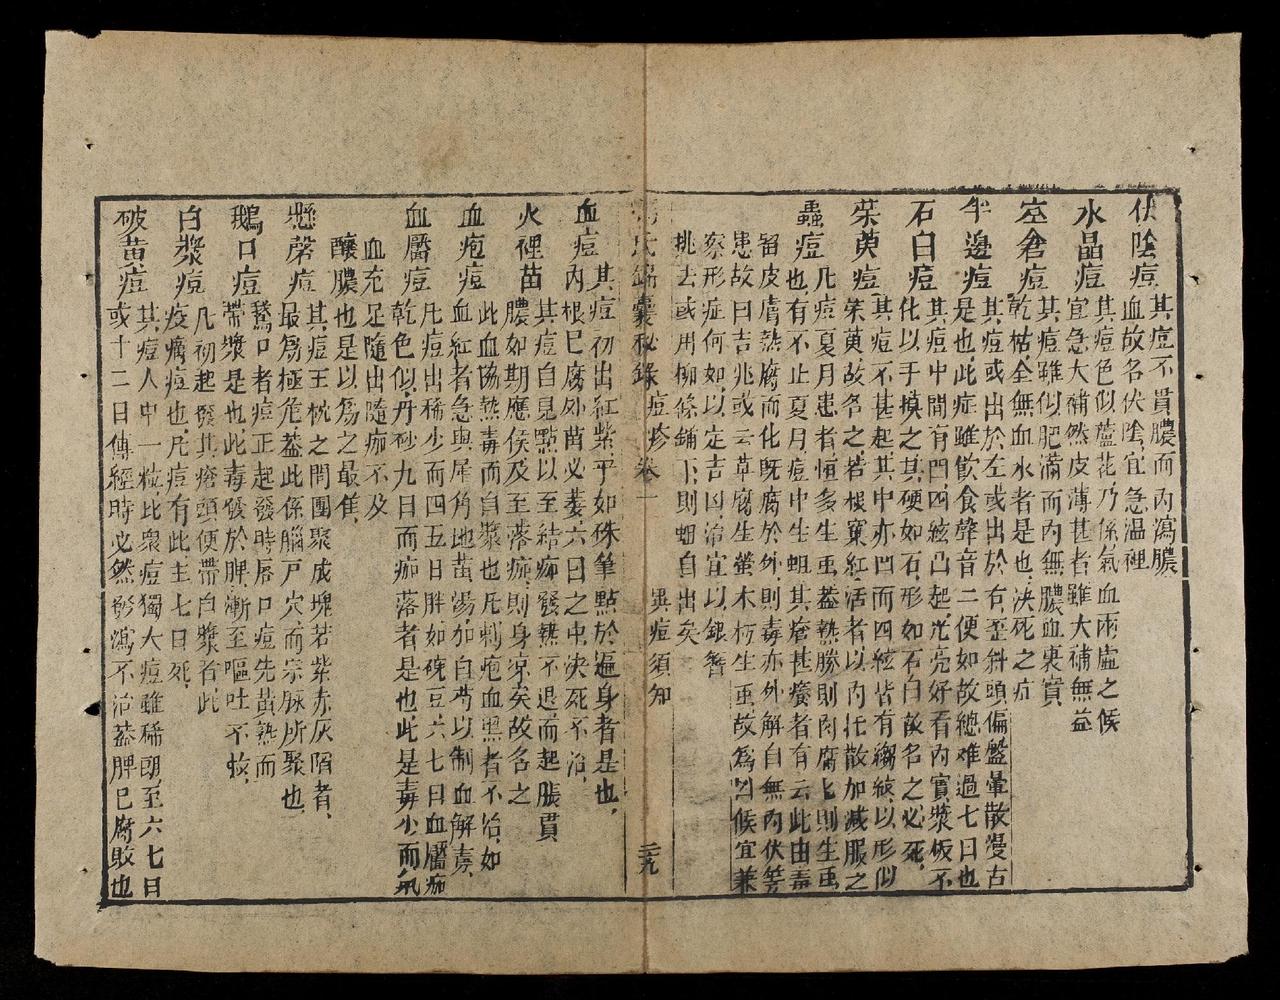 伏陰痘 其痘不貫膿而內瀉膿
血故名伏陰宜急溫裡
水晶痘 其痘色似蘆花乃係氣血兩虛之候
宜急大補然皮薄甚者雖大補無益
空倉痘 其痘雖似肥滿而內無膿血裹實
乾枯全無血水者是也決死之症
半邊痘 其痘或出於左或出於右歪斜頭偏盤暈散漫古
是也此症雖飲食聲音二便如故總难過七日也
石臼痘 其痘中間有凹四絃凸起光亮好看內實漿板不
化以手摸之其硬如石形如石臼故名之必死
茱萸痘 其痘不甚起其中亦凹而四絃皆有縐紋以形似
茱萸故名之若根窠紅活者以內托散加減服之
蟲痘 凡痘夏月患者恒多生䖝葢熱勝則肉腐匕則生䖝
也有不止夏月痘中生蛆其瘡甚癢者有云此由毒
留皮膚熱腐而化既腐於外則毒亦外解自無內伏等
患故曰吉兆或云草腐生螢木朽生䖝故為凶候宜兼
察形症何如以定吉凶治宜以銀簪
挑去或用柳條鋪下則蛆自出矣
馮氏錦囊秘錄 痘疹卷一 異痘須知 二十九
血痘 其痘初出紅紫乎如硃筆點於遍身者是也
內根已腐外苗必萎六日之中決死不治
火裡苗 其痘自見點以至結痂發熱不退而起脹貫
膿如期應候及至落痂則身凉矣故名之
血疱痘 此血協熱毒而自漿也凡刺疱血黑者不治如
血紅者急與犀角地黃湯加白芍以制血解毒
血靨痘 凡痘出稀少而四五日胖如豌豆六七日血靨痂
乾色似丹砂九日而痂落者是也此是毒少而氣
血充足隨出隨痂不及
釀膿也是以為之最隹
懸磬痘 其痘玉枕之間團聚成塊若紫赤灰陷者
最為極危葢此係腦戸穴而宗脉所聚也
鵝口痘 鵞口者痘正起發時唇口痘先黃熟而
帶漿是也此毒發於脾漸至嘔吐不救
白漿痘 凡初起發其瘡頭便帶白漿者此
疫癘痘也凡痘有此主七日死
破黃痘 其痘人中一粒此衆痘獨大痘雖稀朗至六七日
或十二日傳經時必然發瀉不治葢脾已腐敗也